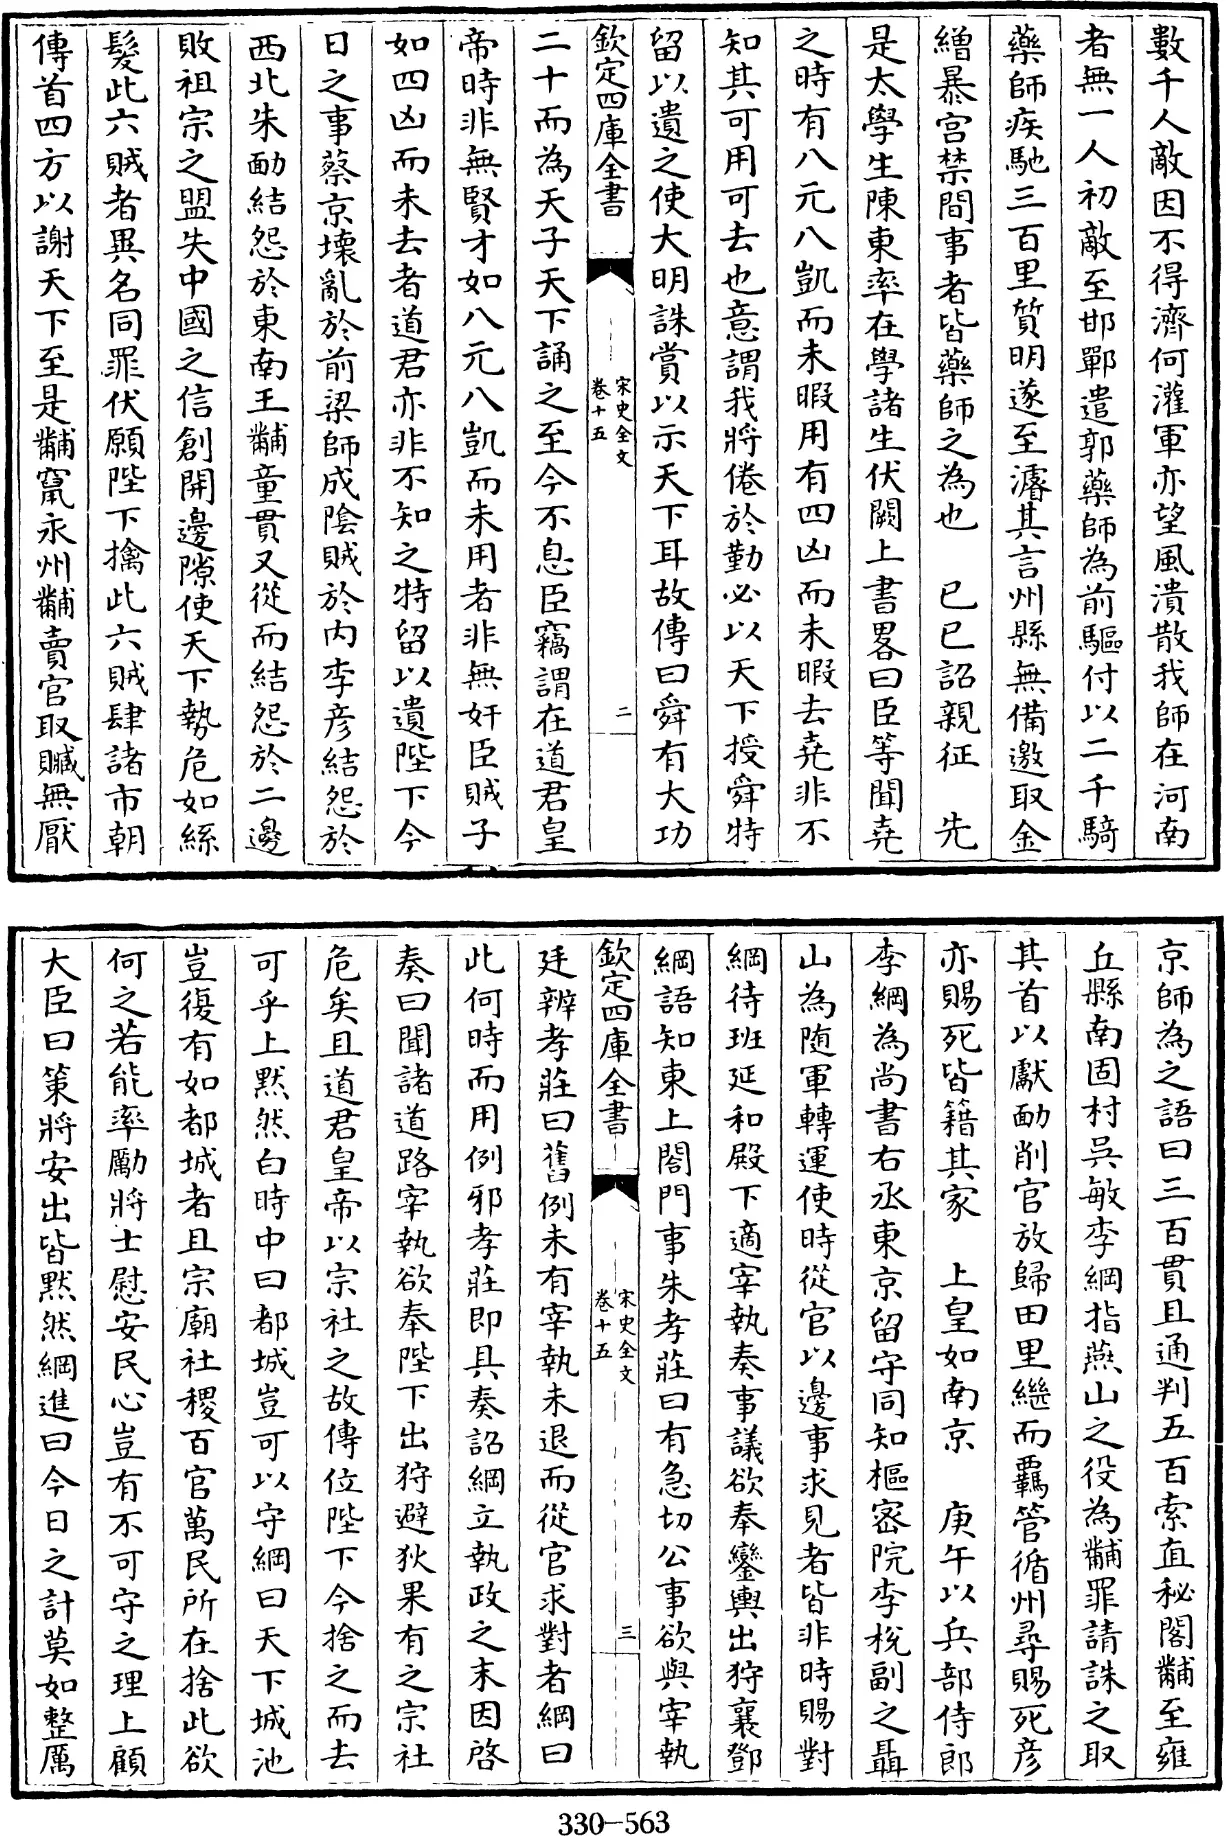 數千人敵因不得濟何灌軍亦望風潰散我師在河南
者無一人初敵至邯鄲遣郭藥師為前驅付以二千騎
藥師疾馳三百里質明遂至濬其言州縣無備邀取金
繒暴宫禁間事者皆藥師之為也 己巳詔親征 先
是太學生陳東率在學諸生伏闕上書畧曰臣等聞堯
之時有八元八凱而未暇用有四凶而未暇去堯非不
知其可用可去也意謂我將倦於勤必以天下授舜特
留以遺之使大明誅賞以示天下耳故傳曰舜有大功
欽定四庫全書
宋史全文
卷十五
二
二十而為天子天下誦之至今不息臣竊謂在道君皇
帝時非無賢才如八元八凱而未用者非無奸臣賊子
如四凶而未去者道君亦非不知之特留以遺陛下今
日之事蔡京壞亂於前梁師成隂賊於内李彦結怨於
西北朱勔結怨於東南王黼童貫又從而結怨於二邊
敗祖宗之盟失中國之信創開邊隙使天下勢危如絲
髮此六賊者異名同罪伏願陛下擒此六賊肆諸市朝
傳首四方以謝天下至是黼竄永州黼賣官取贓無厭
京師為之語曰三百貫且通判五百索直秘閣黼至雍
丘縣南固村吳敏李綱指燕山之役為黼罪請誅之取
其首以獻勔削官放歸田里繼而羈管循州尋賜死彦
亦賜死皆籍其家 上皇如南京 庚午以兵部侍郎
李綱為尚書右丞東京留守同知樞密院李梲副之聶
山為隨軍轉運使時從官以邊事求見者皆非時賜對
綱待班延和殿下適宰執奏事議欲奉鑾輿出狩襄鄧
綱語知東上閤門事朱孝莊曰有急切公事欲與宰執
欽定四庫全書
宋史全文
卷十五
三
廷辨孝莊曰舊例未有宰執未退而從官求對者綱曰
此何時而用例邪孝莊即具奏詔綱立執政之末因啓
奏曰聞諸道路宰執欲奉陛下出狩避狄果有之宗社
危矣且道君皇帝以宗社之故傳位陛下今捨之而去
可乎上黙然白時中曰都城豈可以守綱曰天下城池
豈復有如都城者且宗廟社稷百官萬民所在捨此欲
何之若能率勵將士慰安民心豈有不可守之理上顧
大臣曰策將安出皆黙然綱進曰今日之計莫如整厲
330-563